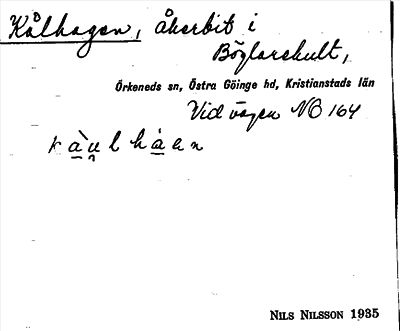 Kålhagen, åkerbit i
Böglarehult,
Örkeneds sn, Östra Göinge hd, Kristianstads län
Vid vägen NO 164
NILS NILSSON 1935